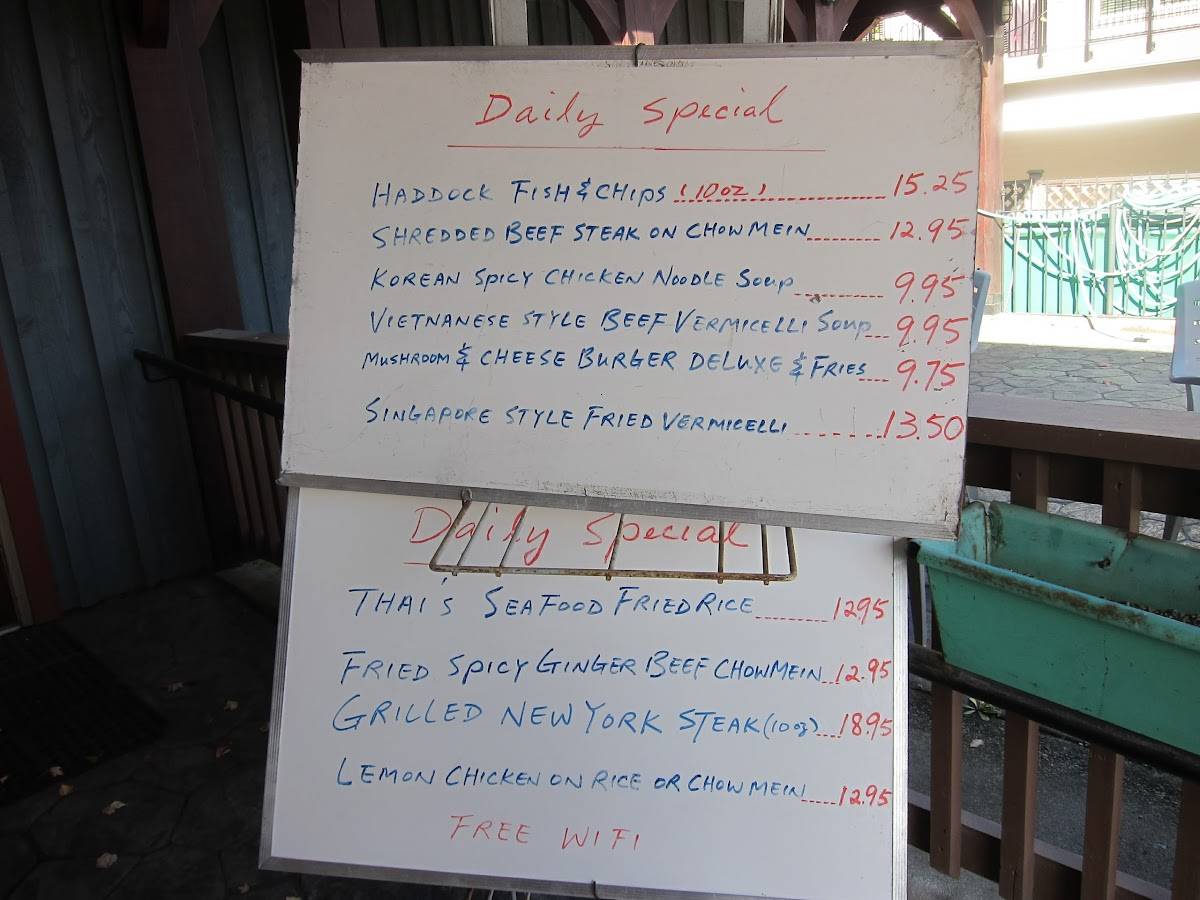 Daily Special
HADDOCK FISH & CHIPS (10 oz) 15.25
SHREDDED BEEF STEAK ON CHOW MEIN 12.95
KOREAN SPICY CHICKEN NOODLE SOUP 9.95
VIETNANESE STYLE BEEF VERMICELLI SOUP 9.95
MUSHROOM & CHEESE BURGER DELUXE & FRIES 9.75
SINGAPORE STYLE FRIED VERMICELLI 13.50
Daily Special
THAI'S SEAFOOD FRIED RICE 12.95
FRIED SPICY GINGER BEEF CHOWMEIN 12.95
GRILLED NEW YORK STEAK (10 oz) 18.95
LEMON CHICKEN ON RICE OR CHOW MEIN 12.95
FREE WIFI